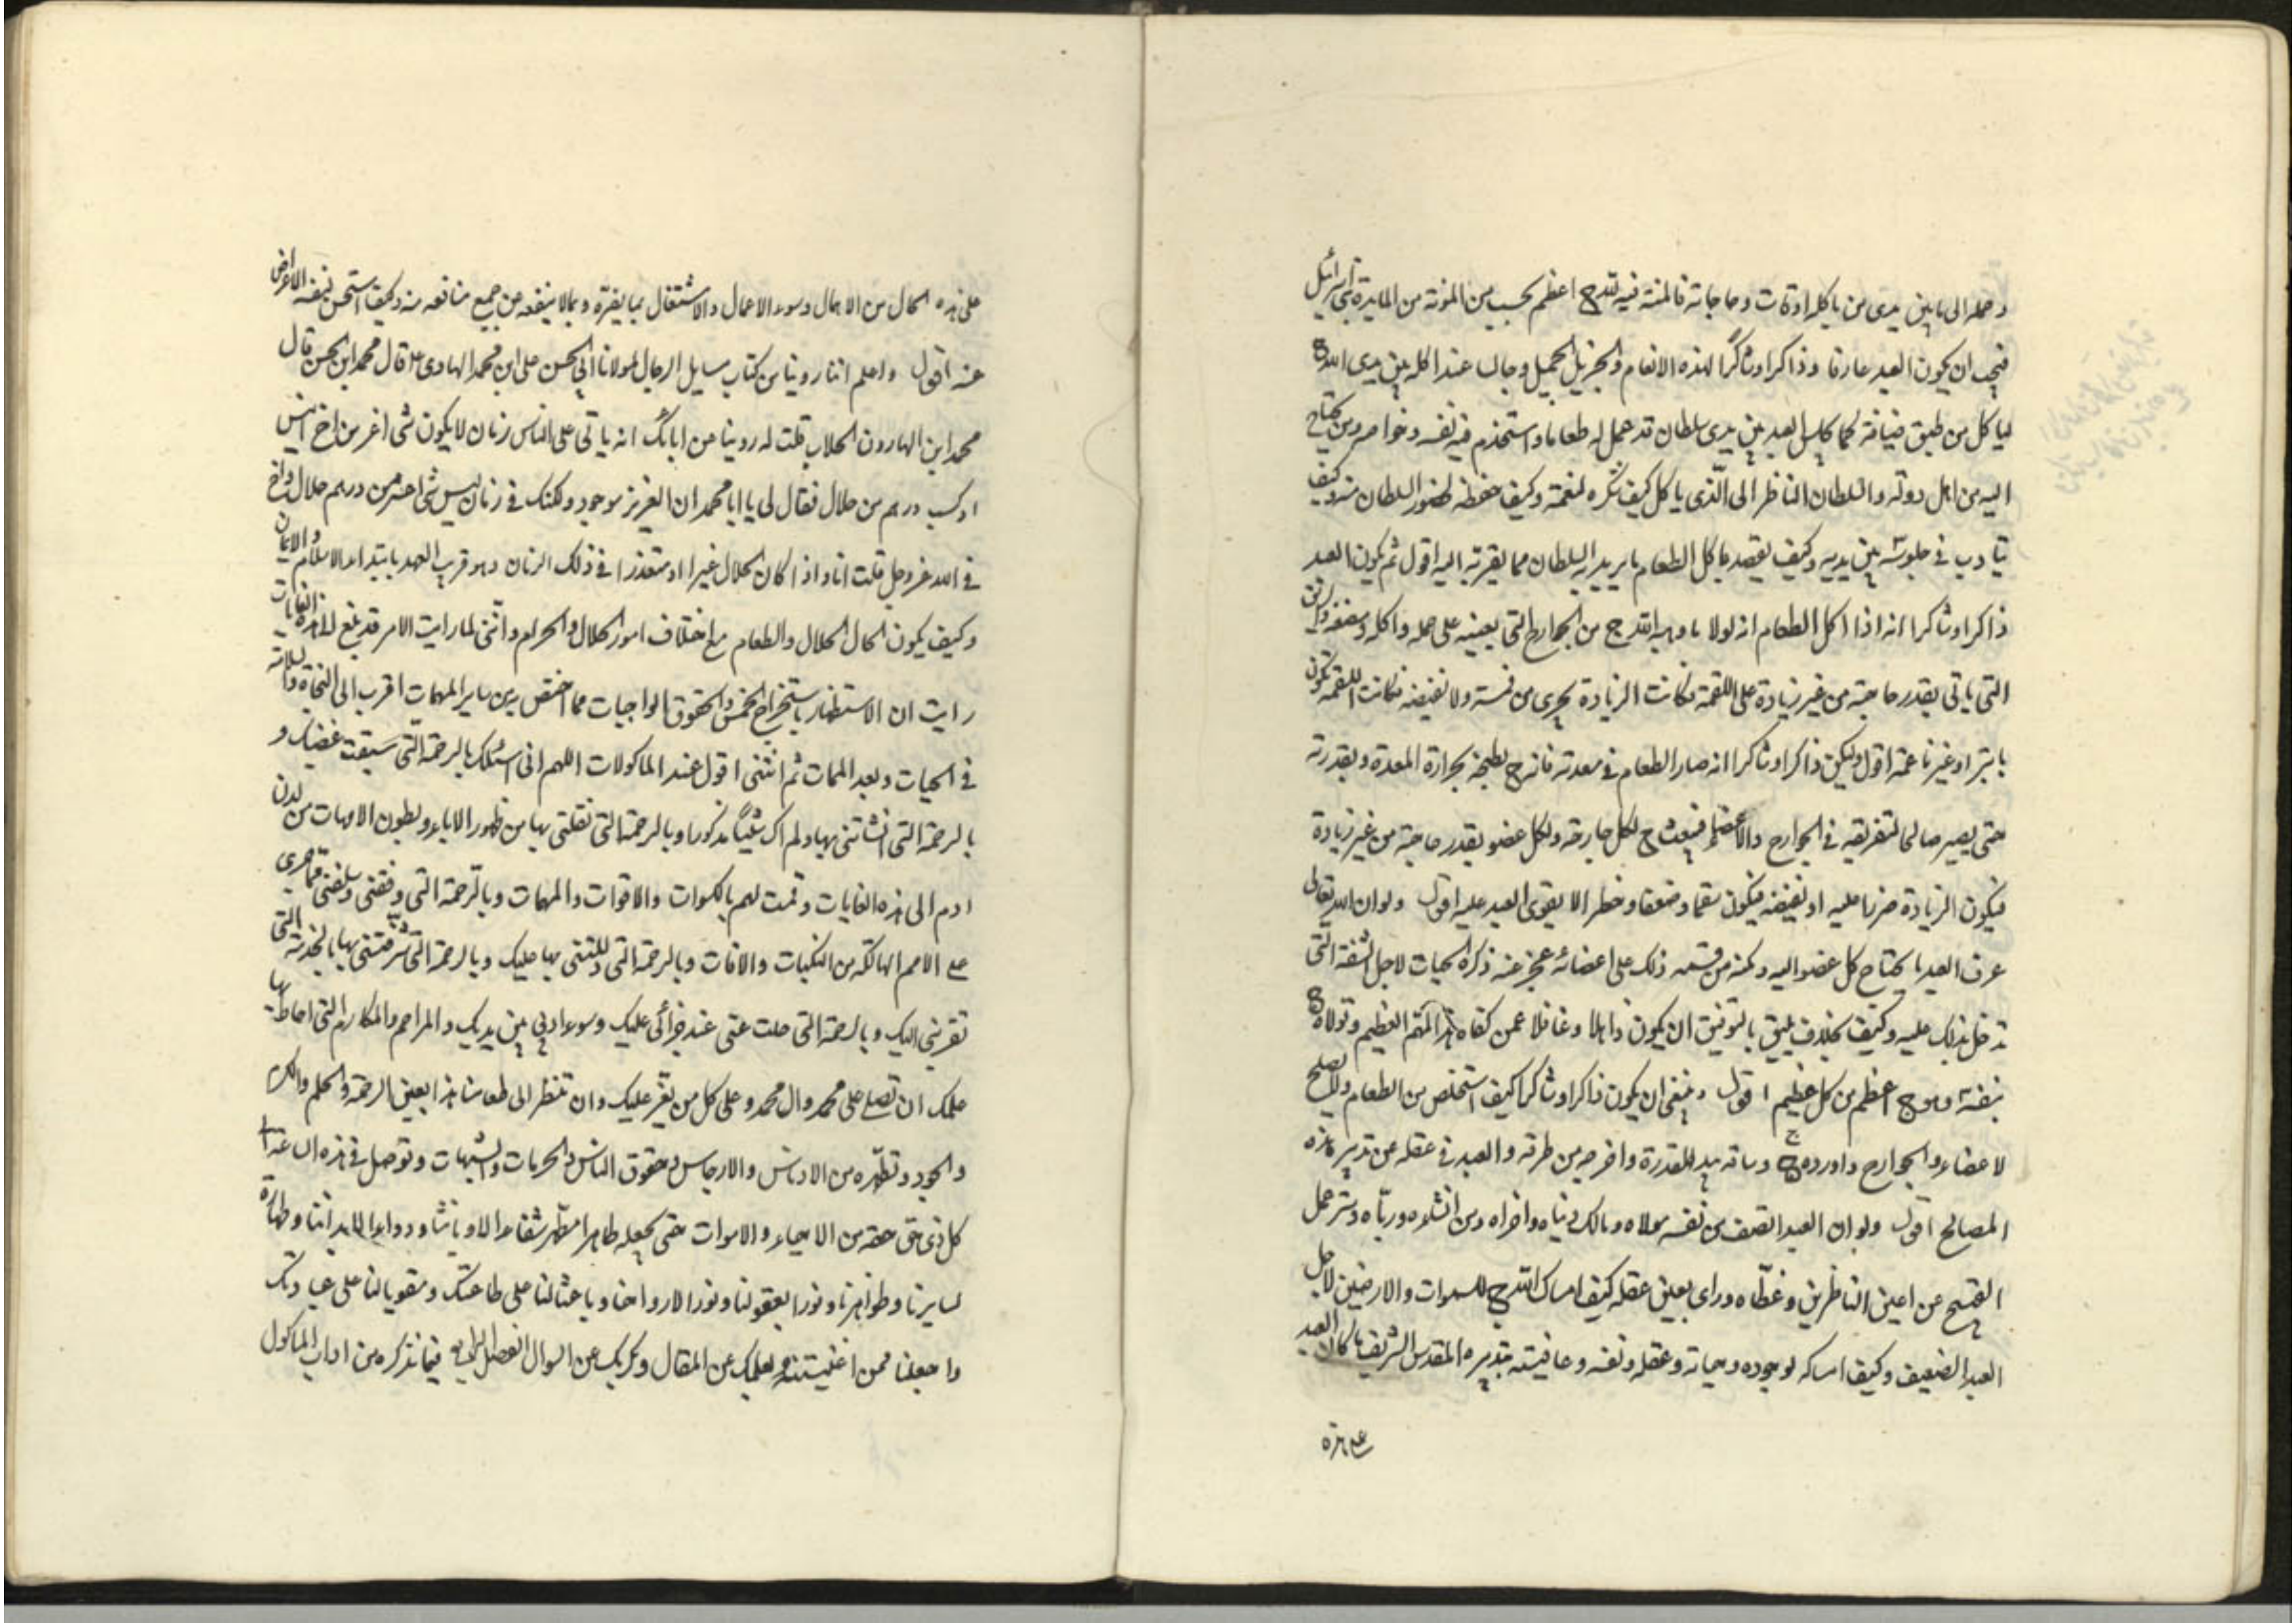 وحمله الى ما بين يدى من ياكله اوقات وحاجاته فالمنة فيه لله ج اعظم بحسب من المؤنة من المايدة بنى اسرائيل
فيجب ان يكون العبد عارفا وذاكرا وشاكرًا لهذه الانعام والجزيل الجميل وجالسا عند اكله بين يدى الله ج
لياكل من طبق ضيافته كما يجلس العبد بين يدى سلطان قد عمل له طعاما واستخدم فيه نفسه وخواصه ومن يحتاج
اليه من اهل دولته والسلطان الناظر الى الّذى ياكل كيف شكره لنعمته وكيف حفظه لحضور السلطان منه وكيف
يتادب فى جلوسه بين يديه وكيف يقصد باكل الطعام ما يريد به السلطان مما يقربه اليه اقول ثم يكون العبد
ذاكرا وشاكرا انه اذا اكل الطعام انه لولا ما وهبه الله ج من الجوارح التى يعينه على حمله واكله ومضغه والريق
التى ياتى بقدر حاجته من غير زيادة على اللقمة فكانت الزيادة يجرى من فمه ولا نقيصه فكانت اللقمة تكون
يابسة او غير ناعمة اقول وليكن ذاكرا وشاكرا انه صار الطعام فى معدته فانه ج يطبخه بحرارة المعدة وبقدرته
حتى يصير صالحا لتفريقه فى الجوارح والاعضاء فيبعث ج لكل جارحة ولكل عضو بقدر حاجته من غير زيادة
فيكون الزيادة ضررا عليه او نقيصه فيكون سقما وضعفا وخطرا لا يقوى العبد عليه اقول ولو ان الله تعالى
عرف العبد ما يحتاج كل عضو اليه ومكنه من قسمه ذلك على اعضائه عجز عنه ذكره الحيات لاجل المشقة الّتى
تدخل بذلك عليه وكيف يليق بالتوفيق ان يكون ذاهلا وغافلا عمن كفاه هذا المهم العظيم وتولاه ج
بنفسه وهو ج اعظم من كل عظيم اقول وينبغى ان يكون ذاكرا وشاكرا كيف استخلص من الطعام ما لا يصلح
لاعضاء والجوارح واورده ج وساقه بيد القدرة واخرجه من طرقه والعبد فى عقله عن تدبير هذه
المصالح اقول ولو ان العبد انصف من نفسه مولاه ومالك دنياه واخراه ومن انشاه وربّاه وستر عمله
القبيح عن اعين الناظرين وغطّاه وراى بعين عقله كيف امساك الله ج للسموات والارضين لاجل
العبد الضعيف وكيف امساكه لوجوده وحياته وعقله ونفسه وعافيته بتدبيره المقدس الشريف ما كان العبد
على هذه
على هذه الحال من الاهمال وسوء الاعمال والاشتغال بما يضره وبما لا ينفعه من جميع منافعه منه وكيف استحسن لنفسه الاعراض
عنه اقول واعلم اننا روينا من كتاب مسايل الرجال لمولانا ابى الحسن على ابن محمد الهادى ع قال محمد ابن الحسن قال
محمد ابن الهارون الجلاب قلت له روينا عن ابائك انه ياتى على الناس زمان لا يكون شى اعز من اخ انيس
او كسب درهم من حلال فقال لى يا ابا محمد ان العزيز موجود ولكنك فى زمان ليس شى اعسر من درهم حلال واخ
فى الله عز وجل قلت انا واذا كان الحلال عسيرا او متعذرا فى ذلك الزمان وهو قريب العهد بابتداء الاسلام والايمان
وكيف يكون الحال الحلال والطعام مع اختلاف امور الحلال والحرام واننى لما رايت الامر قد بلغ الى هذه الغايات
رايت ان الاستظهار باستخراج الخمس والحقوق الواجبات مما اختص به من ساير المهمات اقرب الى النجاة والسلامة
فى الحيات وبعد الممات ثم اننى اقول عند الماكولات اللهم انى اسئلك بالرحمة الّتى سبقت غضبك و
بالرحمة التى انشاتنى بها ولم اك شيئًا مذكورا وبالرحمة التى نقلتنى بها من ظهور الاباء وبطون الامهات من لدن
ادم الى هذه الغايات وقمت لهم بالكسوات والاقوات والمهمات وبالرحمة التى وقيتنى وسلفى مما جرى
على الامم الهالكة من النكبات والافات وبالرحمة التى دللتنى بها عليك وبالرحمة التى شرّفتنى بها بالخدمة التى
تقربنى اليك وبالرحمة التى حلمت عنى عند جرائى عليك وسوء ادبى بين يديك والمراحم والمكارم التى احاط بها
علمك ان تصلى على محمد وال محمد وعلى كل من يعز عليك وان تنظر الى طعامنا هذا بعين الرحمة والحلم والكرم
والجود وتطهّره من الادناس والارجاس وحقوق الناس والحرمات والشبهات وتوصل فى هذه الساعة الى
كل ذى حق حقه من الاحياء والاموات حتى تجعله طاهرا مطهرا شفاء لادياننا ودواء لابداننا وطهارة
لسرايرنا وظواهرنا ونورا لعقولنا ونورا لارواحنا وباعثا لنا على طاعتك ومقويا لنا على عبادتك
واجعلنا ممن اغنيته بعلمك عن المقال وبكرمك عن السؤال الفصل فيما نذكره من اداب الماكول